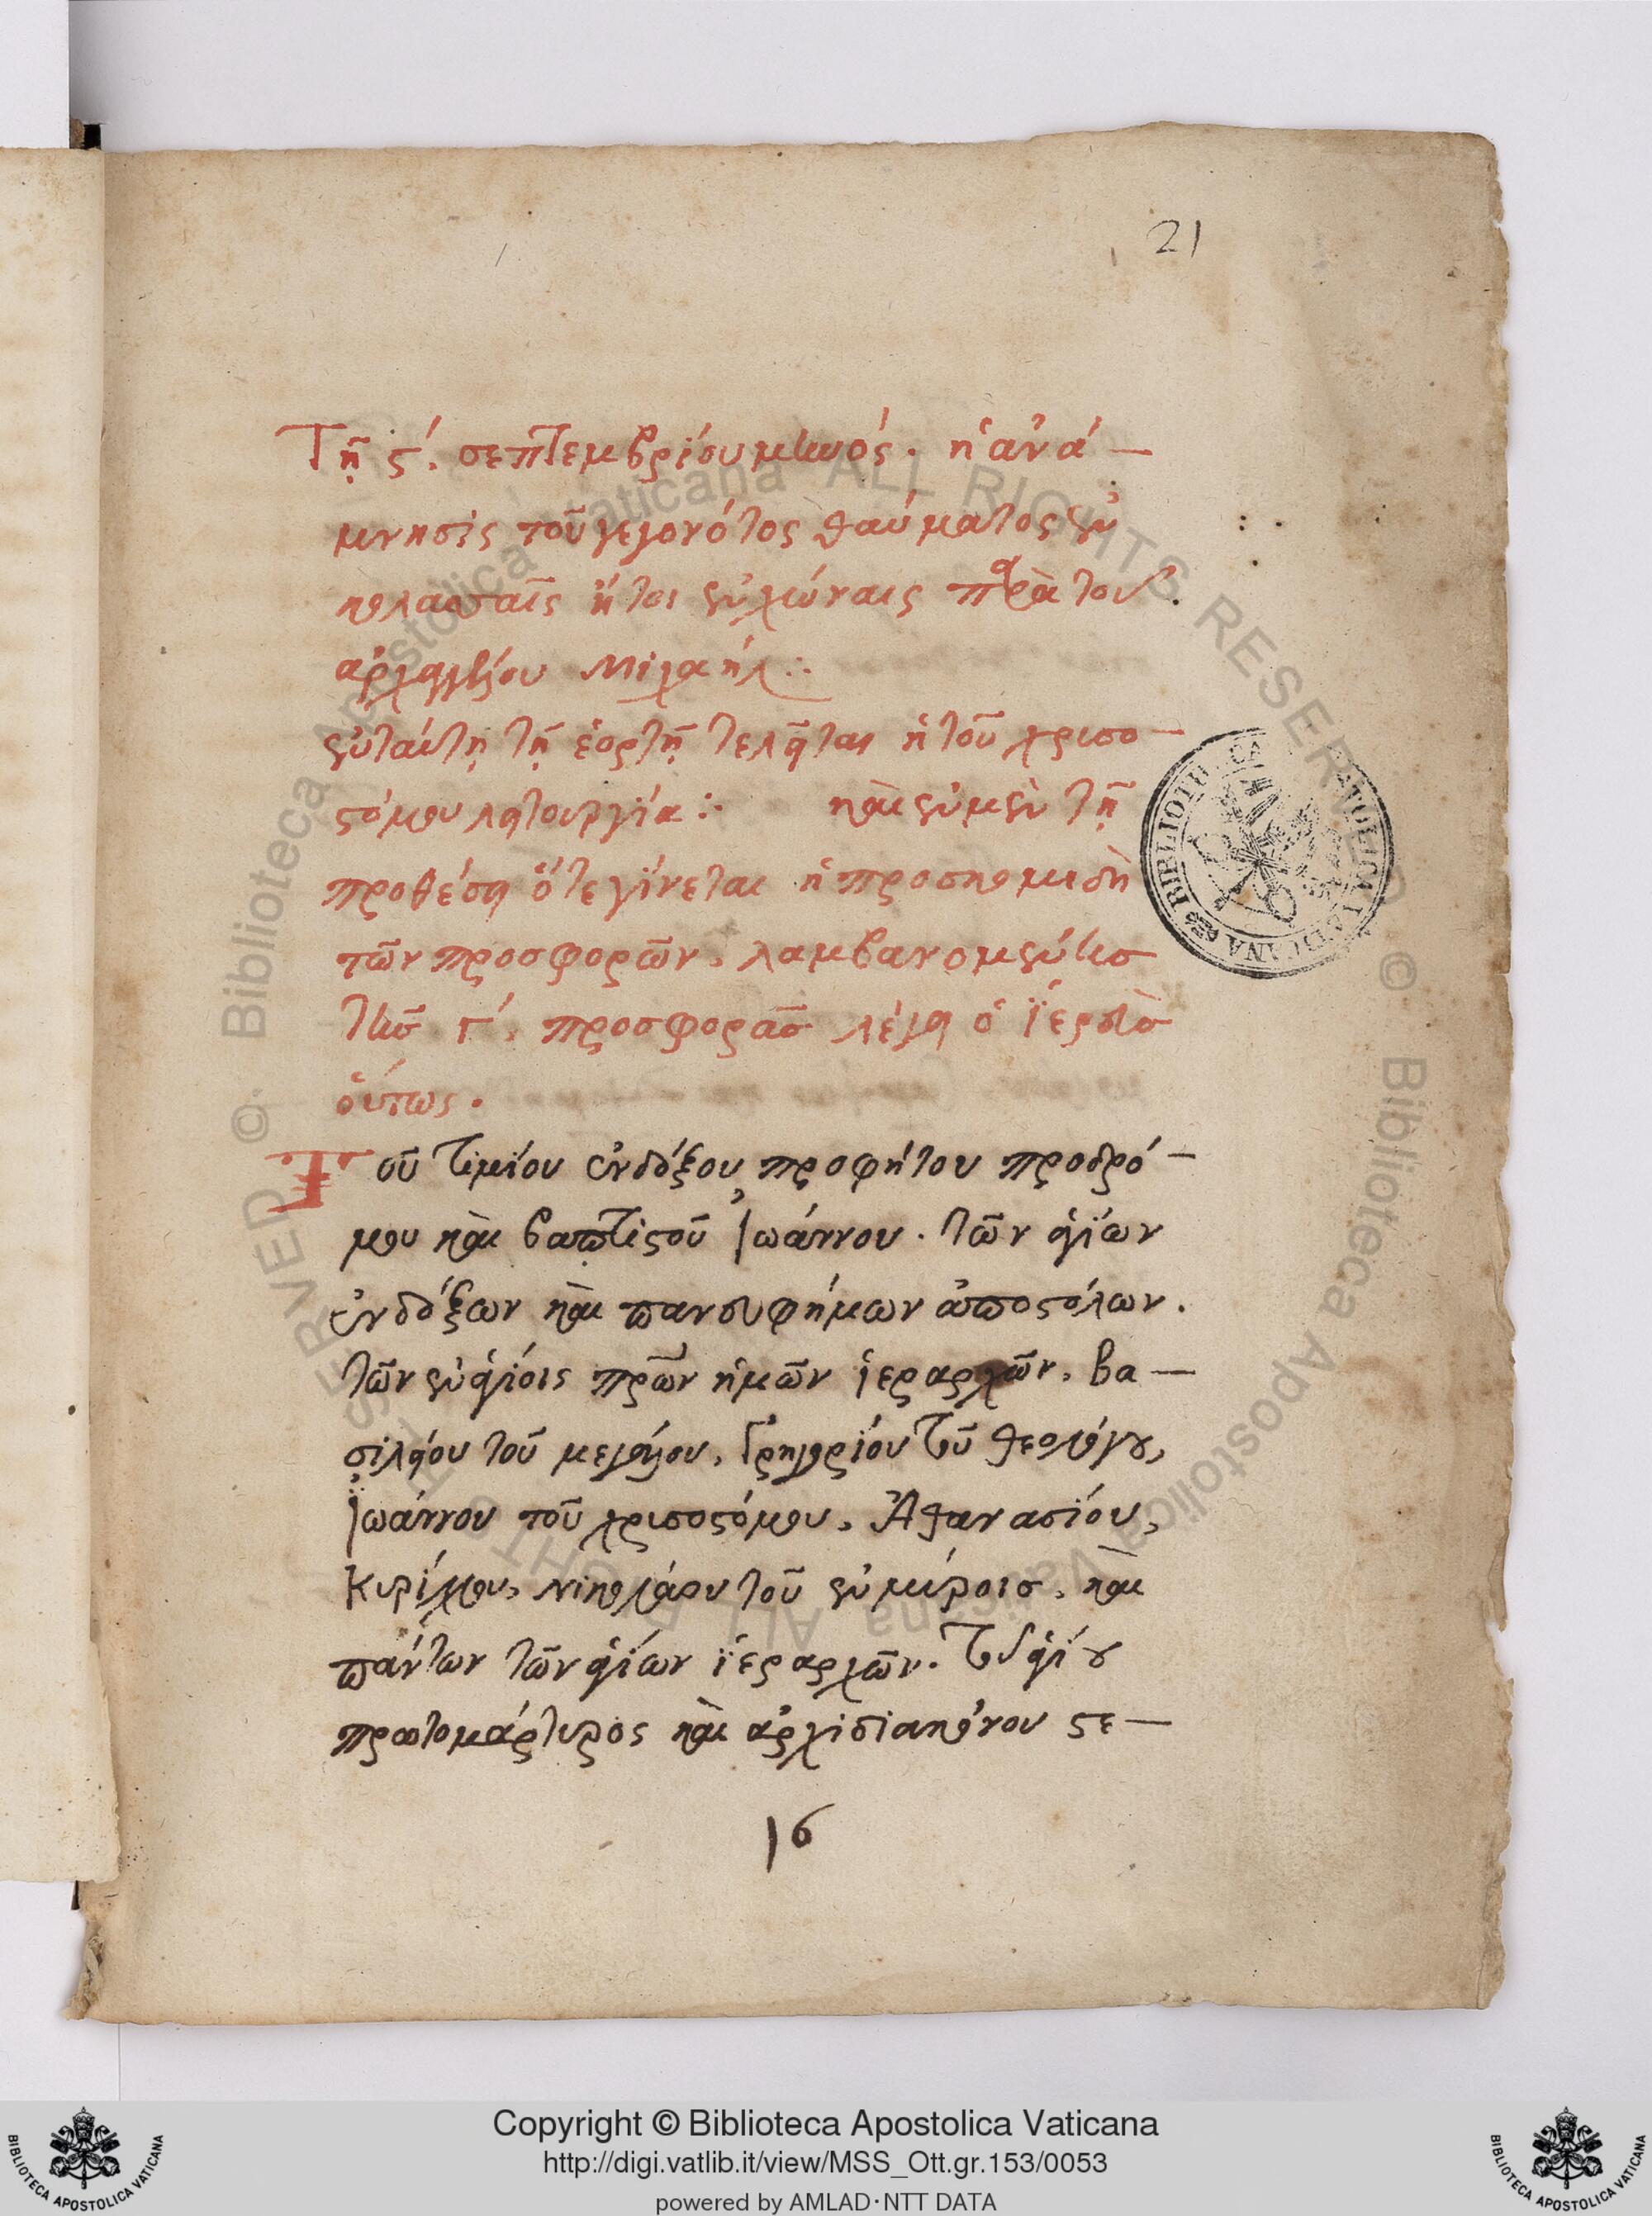 21
Τῆ ς΄. σεπτεμβρίου μηνός. ἡ ἀνά-
μνησις τοῦ γεγονότος θαύματος ἐν
κολασσαῖς ἤτοι ἐν χώναις παρὰ τοῦ
ἀρχαγγέλου Μιχαήλ :
ἐν ταύτῃ τῇ ἑορτῇ τελεῖται ἡ τοῦ χρισο-
στόμου λειτουργία : καὶ ἐν μὲν τῇ
προθέσει ὅτε γίνεται ἡ προσκομιδὴ
τῶν προσφορῶν, λαμβανομένησ
τῆσ γ΄. προσφορᾶσ λέγει ὁ ἱερεὺσ
οὕτως.
Τοῦ τιμίου ἐνδόξου προφήτου προδρό-
μου καὶ βαπτιστοῦ Ἰωάννου. τῶν ἁγίων
ἐνδόξων καὶ πανευφήμων ἀποστόλων.
τῶν ἐν ἁγίοις πρῶν ἡμῶν ἱεραρχῶν, βα-
σιλείου τοῦ μεγάλου, Γρηγορίου τοῦ θεολόγου,
Ἰωάννου τοῦ χρισοστόμου, Ἀθανασίου,
Κυρίλλου, Νικολάου τοῦ ἐν μύροισ, καὶ
πάντων τῶν ἁγίων ἱεραρχῶν. Τοῦ ἁγίου
πρωτομάρτυρος καὶ ἀρχιδιακόνου στε-
16
BIBLIOTHECA APOSTOLICA VATICANA
Copyright © Biblioteca Apostolica Vaticana
http://digi.vatlib.it/view/MSS_Ott.gr.153/0053
powered by AMLAD·NTT DATA
BIBLIOTECA APOSTOLICA VATICANA
BIBLIOTECA APOSTOLICA VATICANA
© Biblioteca Apostolica Vaticana ALL RIGHTS RESERVED
© Biblioteca Apostolica Vaticana ALL RIGHTS RESERVED